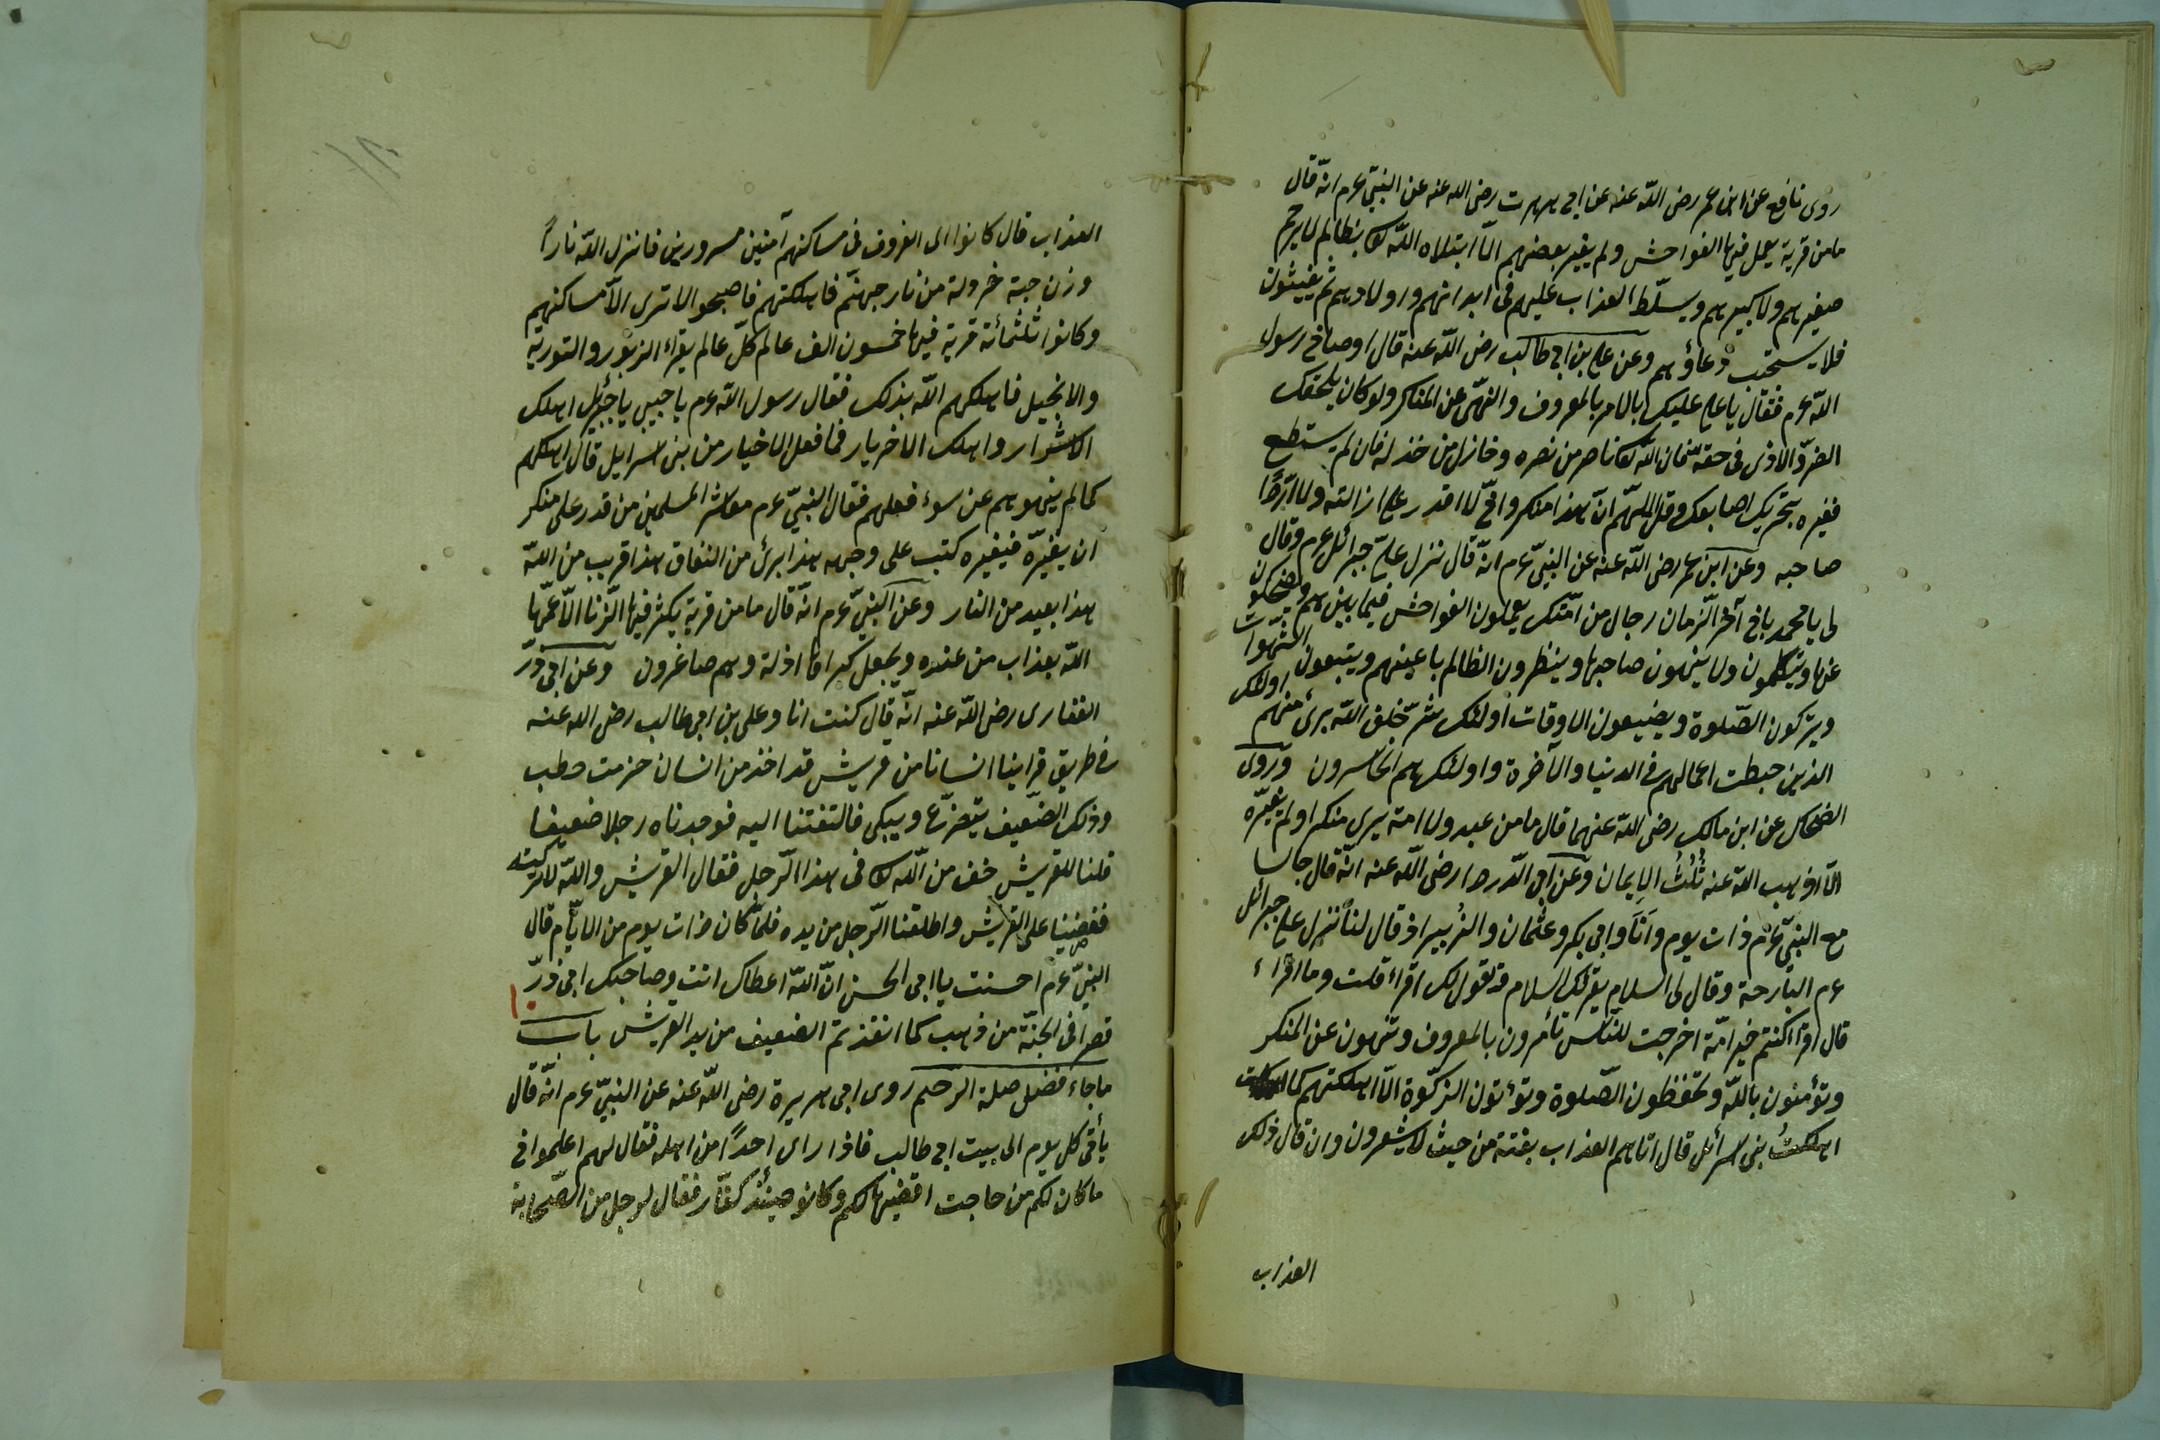 روى نافع عن ابن عمر رضى اللّه عنه عن ابى هريرت رضى الله عنه عن النبىّ عم انّه قال
مامن قرية يعمل فيها الفواحش ولم يغير بعضهم الّا ابتلاه اللّه تعالى بظالم لا يرحم
صغيرهم ولا كبيرهم ويسلّط العذاب عليهم فى ابدانهم واولادهم ثم يغيثون
فلا يستجب دعاؤهم وعن على بن ابى طالب رضى اللّه عنه قال اوصانى رسول
اللّه عم فقال يا على عليك بالامر بالمعروف والنّهى عن المنكر ولو كان يلحقك
الضرّ والاذى فى حقه فان اللّه تعالى ناصر من نصره وخاذل من خذله فان لم يستطع
فغيره بتحريك اصابعك وقل اللهم انّ هذا منكر وانّى لا اقدر على ازالته ولا
صاحبه وعن ابن عمر رضى اللّه عنه عن النبىّ عم انّه قال نزل علىّ جبرائل عم وقال
لى يا محمد يأتى آخر الزّمان رجال من امّتك يعملون الفواحش فيما بينهم ويضحكون
عنها ويتكلمون ولا ينهون صاحبها وينظرون الظالم باعينهم ويتبعون الشّهوات
ويتركون الصّلوة ويضيعون الاوقات اولئك شرّ خلق اللّه برئ منهم اولئك
الذين حبطت اعمالهم فى الدنيا والآخرة واولئك هم الخاسرون وروى
الضحاك عن ابن مالك رضى اللّه عنهما قال مامن عبد ولا امة يرى منكرا ولم يغيّره
الّا اذهب اللّه عنه ثُلُثُ الايمان وعن ابى الدّرداء رضى اللّه عنه انّه قال جالسا
مع النبى عم ذات يوم وأنَا وابى بكر وعثمان والزّبير اذ قال لنا نزل على جبرائل
عم البارحة وقال لى السلام يقرئك السلام قد تقول لك اقراء قلت وما اقراء
قال اقرا كنتم خير امّة اخرجت للنّاس تأمرون بالمعروف وتنهون عن المنكر
وتؤمنون باللّه وتحفظون الصّلوة وتؤتون الزكوة الّا اهلكتهم كما
اهلكتُ بنى اسرائل قال اتاهم العذاب بغتة من حيث لا يشعرون وان قال ذلك
العذاب
العذاب قال كانوا الى الغروف فى مساكنهم آمنين مسرورين فانزل اللّه ناراً
وزن حبة خردلة من نار جهنّم فاهلكتهم فاصبحوا لا ترى الّا مساكنهم
وكانوا ثلثمائة قرية فيها خمسون الف عالم كلّ عالم يقراء الزبور والتورية
والانجيل فاهلكهم اللّه بذلك فقال رسول اللّه عم يا حبيبى يا جبرئيل اهلك
الاشرار واهلك الاخريار فما فعل الاخيار من بنى اسرايل قال اهلكهم
كما لم ينهوهم عن سوء فعلهم فقال النبىّ عم معاشر المسلمين من قدر على منكر
ان يغيّره فيغيره كتب على وجهه هذا برئ من النفاق هذا قريب من اللّه
هذا بعيد من النار وعن النبىّ عم انّه قال مامن قرية يكثر فيها الزّنا الّا عمّها
اللّه بعذاب من عنده ويجعل كبراها اذلة وهم صاغرون وعن ابى ذرّ
الغفارى رضى اللّه عنه انّه قال كنت انا وعلى بن ابى طالب رضى الله عنه
فى طريق فراينا انسانا من قريش قد اخذ من انسان حزمت حطب
وذلك الضّعيف يتضرّع ويبكى فالتفتنا اليه فوجدناه رجلا ضعيفا
قلنا للقريش خف من اللّه تعالى فى هذا الرّجل فقال القريش واللّه لا تركيته
فغضبنا على القريش واطلقنا الرّجل من يده فلمّا كان ذات يوم من الايّام قال
النبىّ عم احسنت يا ابى الحسن انّ اللّه اعطاك انت وصاحبك ابى ذرّ
قصرا فى الجنّة من ذهب كما انقذتم الضعيف من يد القريش باب ١٠
ماجاء فضل صلة الرّحم روى ابى هريرة رضى اللّه عنه عن النبىّ عم انّه قال
يأتى كل يوم الى بيت ابى طالب فاذا راى احدًا من اهله فقال لهم اعلموا فى
ما كان لكم من حاجت اقضيها لكم وكانو حينئذ كفّار فقال لرجل من الصّحابة